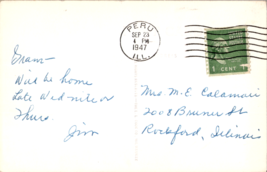 PERU
SEP 23
4 PM
1947
ILL.
1 CENT
Evans-
Will be home
late Wed nite or
Thurs.
Jim
Mrs M. E. Calamari
2008 Bruner St
Rockford, Illinois